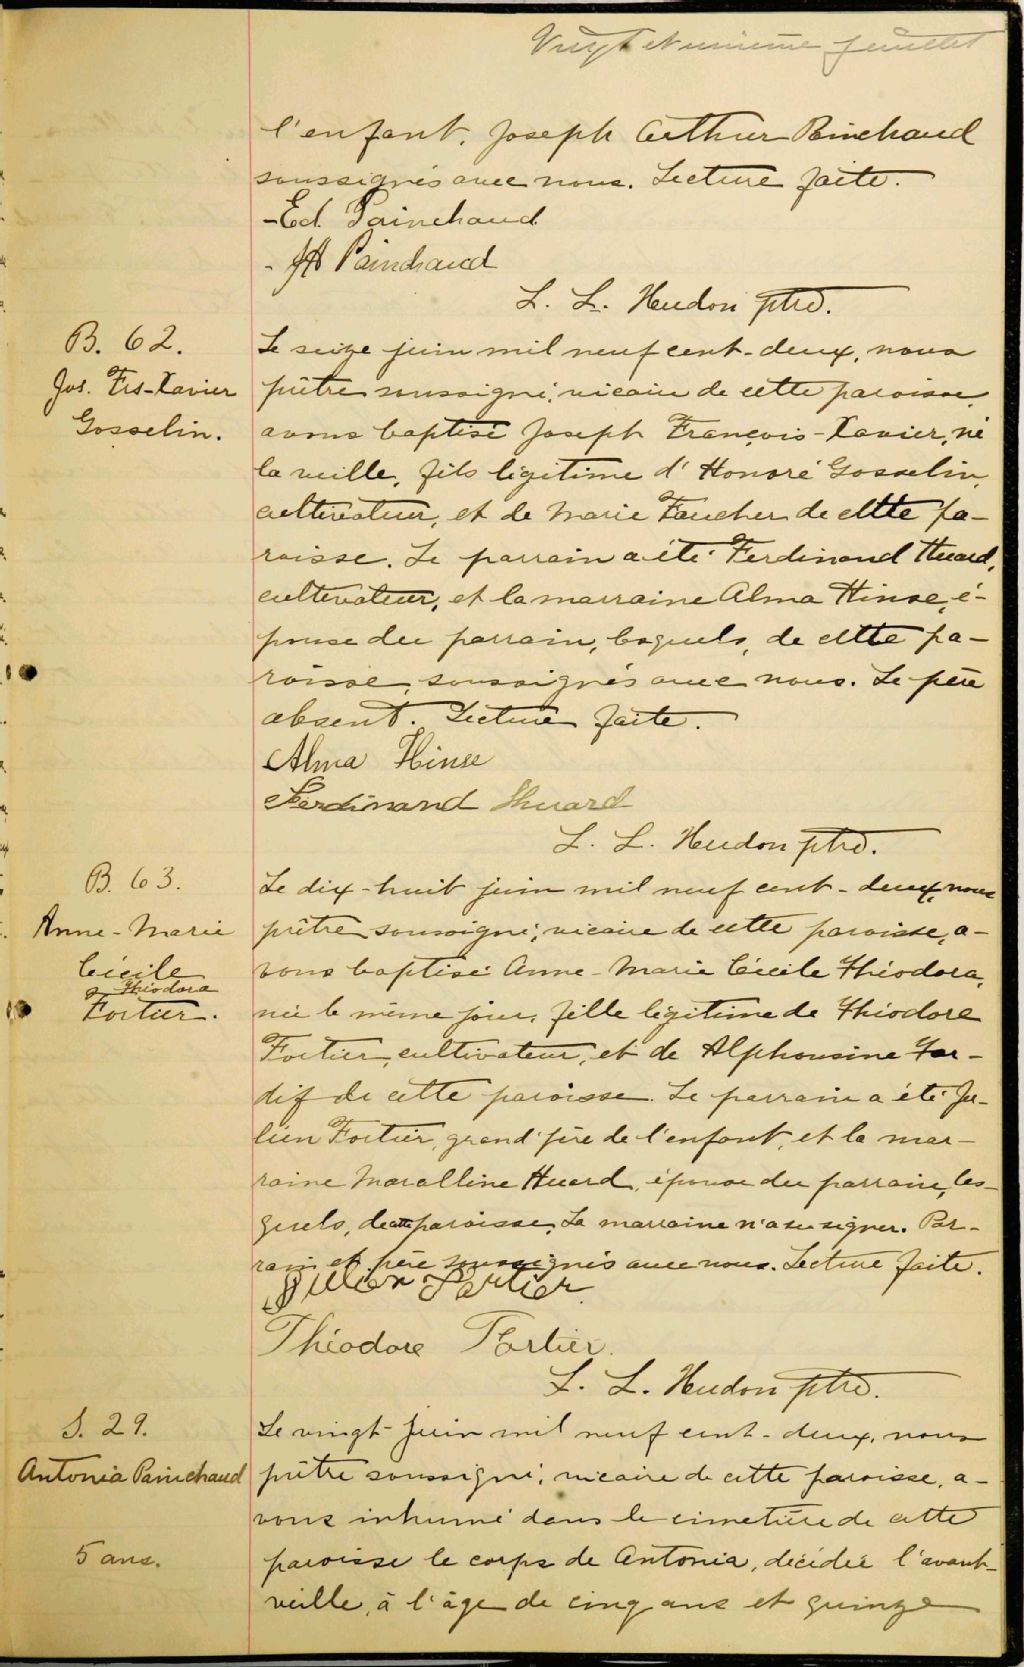 Vingt et unième feuillet
l'enfant, Joseph Arthur Painchaud
soussignés avec nous. Lecture faite.
-Ed. Painchaud
- JA Painchaud
L. L. Hudon ptre.
B. 62.
Jos. Frs-Xavier
Gosselin.
Le seize juin mil neuf cent-deux, nous
prêtre soussigné, vicaire de cette paroisse,
avons baptisé Joseph François-Xavier, né
la veille, fils légitime d'Honoré Gosselin,
cultivateur, et de Marie Faucher de cette pa-
roisse. Le parrain a été Ferdinand Huard,
cultivateur, et la marraine Alma Hinse, é-
pouse du parrain, lesquels, de cette pa-
roisse, soussignés avec nous. Le père
absent. Lecture faite.
Alma Hinse
Ferdinand Huard
L. L. Hudon ptre.
B. 63.
Anne-Marie
Cécile
Théodora
Fortier.
Le dix-huit juin mil neuf cent-deux, nous
prêtre soussigné, vicaire de cette paroisse, a-
vons baptisé Anne-Marie Cécile Théodora,
née le même jour, fille légitime de Théodore
Fortier, cultivateur, et de Alphonsine Tar-
dif de cette paroisse. Le parrain a été Ju-
lien Fortier, grand'père de l'enfant, et la mar-
raine Marcelline Huard, épouse du parrain, les-
quels, de cette paroisse. La marraine n'a su signer. Par-
rain et père soussignés avec nous. Lecture faite.
Julien Fortier
Théodore Fortier.
L. L. Hudon ptre.
S. 29.
Antonia Painchaud
5 ans.
Le vingt juin mil neuf cent-deux, nous
prêtre soussigné, vicaire de cette paroisse, a-
vons inhumé dans le cimetière de cette
paroisse le corps de Antonia, décédée l'avant-
veille, à l'âge de cinq ans et quinze